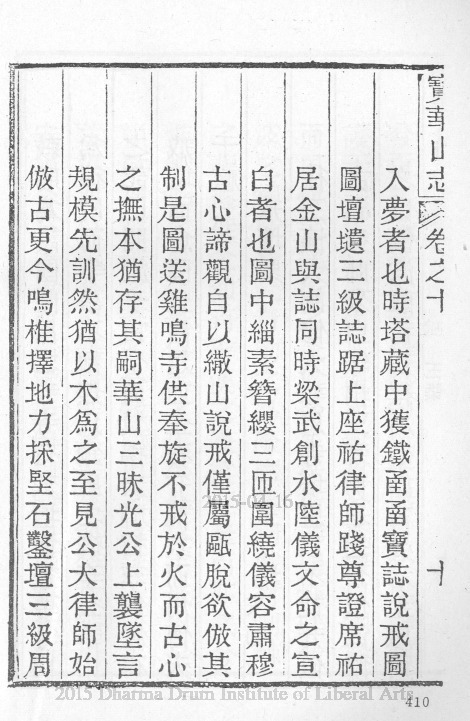 寶華山志 卷之十 十
入夢者也時塔藏中獲鐵函函寶誌說戒圖
圖壇壝三級誌踞上座祐律師踐尊證席祐
居金山與誌同時梁武創水陸儀文命之宣
白者也圖中緇素簪纓三匝圍繞儀容肅穆
古心諦觀自以繖山說戒僅屬甌脫欲倣其
制是圖送雞鳴寺供奉旋不戒於火而古心
之撫本猶存其嗣華山三昧光公上襲墜言
規模先訓然猶以木爲之至見公大律師始
倣古更今鳴椎擇地力採堅石鑿壇三級周
2015-04-16
2015 Dharma Drum Institute of Liberal Arts
410